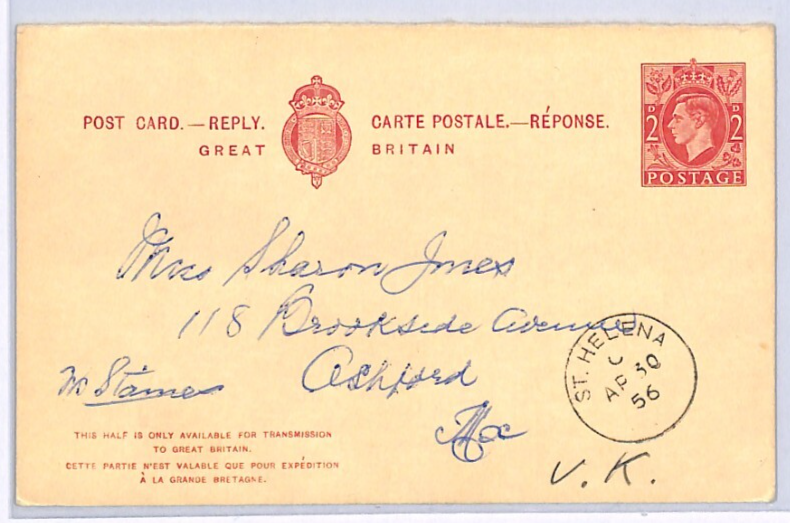 POST CARD.—REPLY. CARTE POSTALE.—RÉPONSE.
GREAT BRITAIN
2D 2D
POSTAGE
Miss Sharon Jones
118 Brookside Avenue
Ashford
Mx
Nr Staines
U.K.
ST. HELENA
C
AP 30
56
THIS HALF IS ONLY AVAILABLE FOR TRANSMISSION
TO GREAT BRITAIN.
CETTE PARTIE N'EST VALABLE QUE POUR EXPÉDITION
À LA GRANDE BRETAGNE.